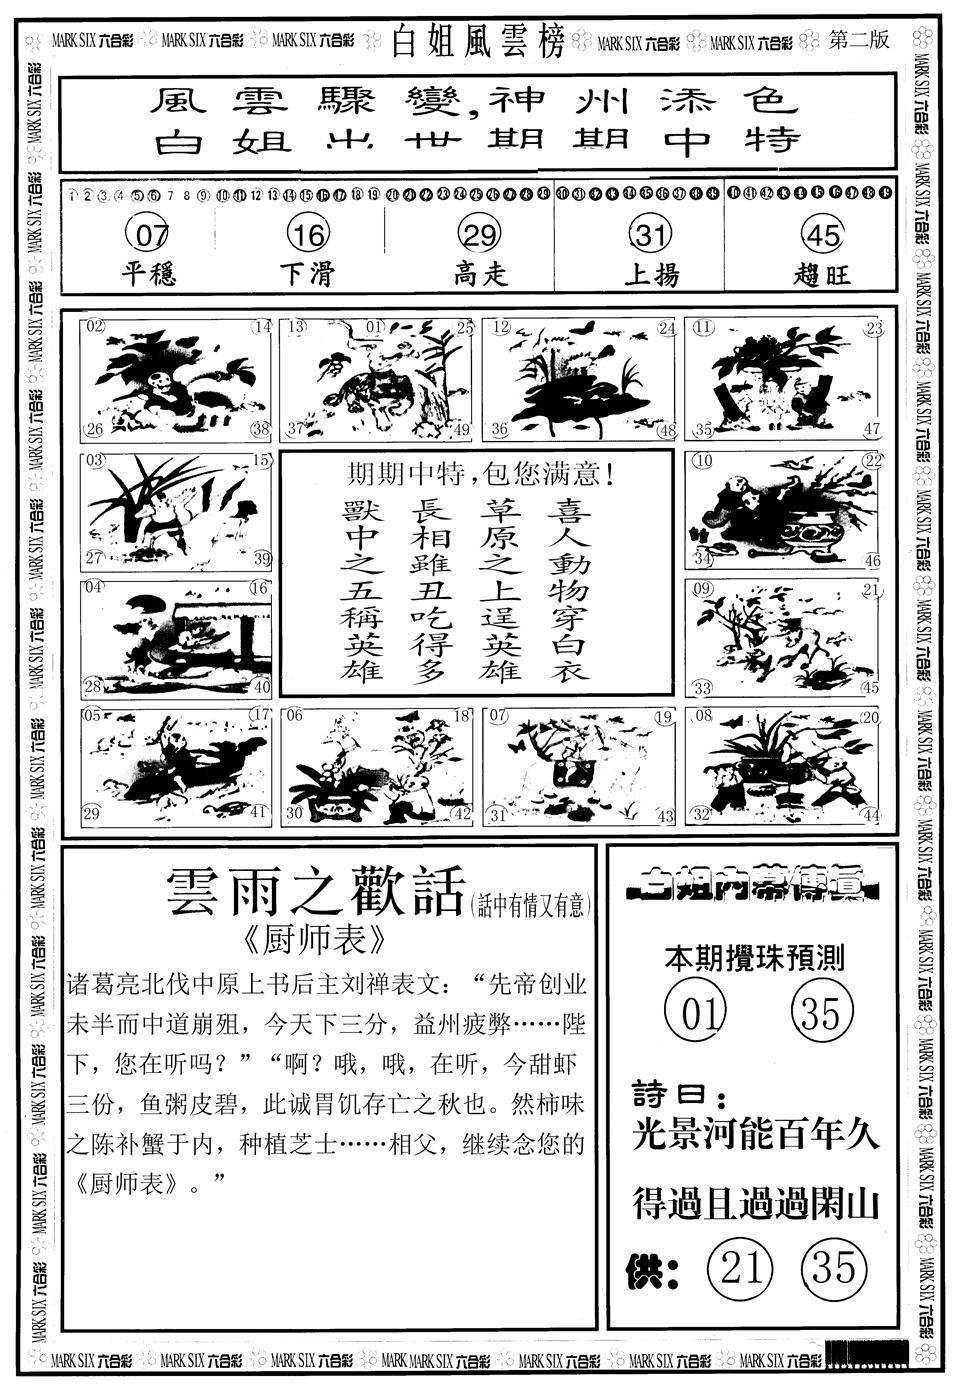 MARK SIX 六合彩 MARK SIX 六合彩 MARK SIX 六合彩 白姐風雲榜 MARK SIX 六合彩 MARK SIX 六合彩 第二版
風雲驟變,神州添色
白姐出世期期中特
1 2 3 4 5 6 7 8 9 10 11 12 13 14 15 16 17 18 19 20 21 22 23 24 25 26 27 28 29 30 31 32 33 34 35 36 37 38 39 40 41 42 43 44 45 46 47 48 49
07 16 29 31 45
平穩 下滑 高走 上揚 趨旺
02 14 13 01 25 12 24 11 23
26 38 37 49 36 48 35 47
03 15
27 39
04 16
28 40
期期中特,包您满意!
喜人動物穿白衣
草原之上逞英雄
長相雖丑吃得多
獸中之五稱英雄
10 22
34 46
09 21
33 45
05 17 06 18 07 19 08 20
29 41 30 42 31 43 32 44
雲雨之歡話(話中有情又有意)
《厨师表》
诸葛亮北伐中原上书后主刘禅表文：“先帝创业
未半而中道崩殂，今天下三分，益州疲弊……陛
下，您在听吗？”“啊？哦，哦，在听，今甜虾
三份，鱼粥皮碧，此诚胃饥存亡之秋也。然柿味
之陈补蟹于内，种植芝士……相父，继续念您的
《厨师表》。”
白姐内幕傳真
本期攪珠預測
01 35
詩曰：
光景河能百年久
得過且過過閑山
供：21 35
MARK SIX 六合彩 MARK SIX 六合彩 MARK SIX 六合彩 MARK MARK SIX 六合彩 MARK SIX 六合彩 MARK SIX 六合彩 MARK SIX 六合彩